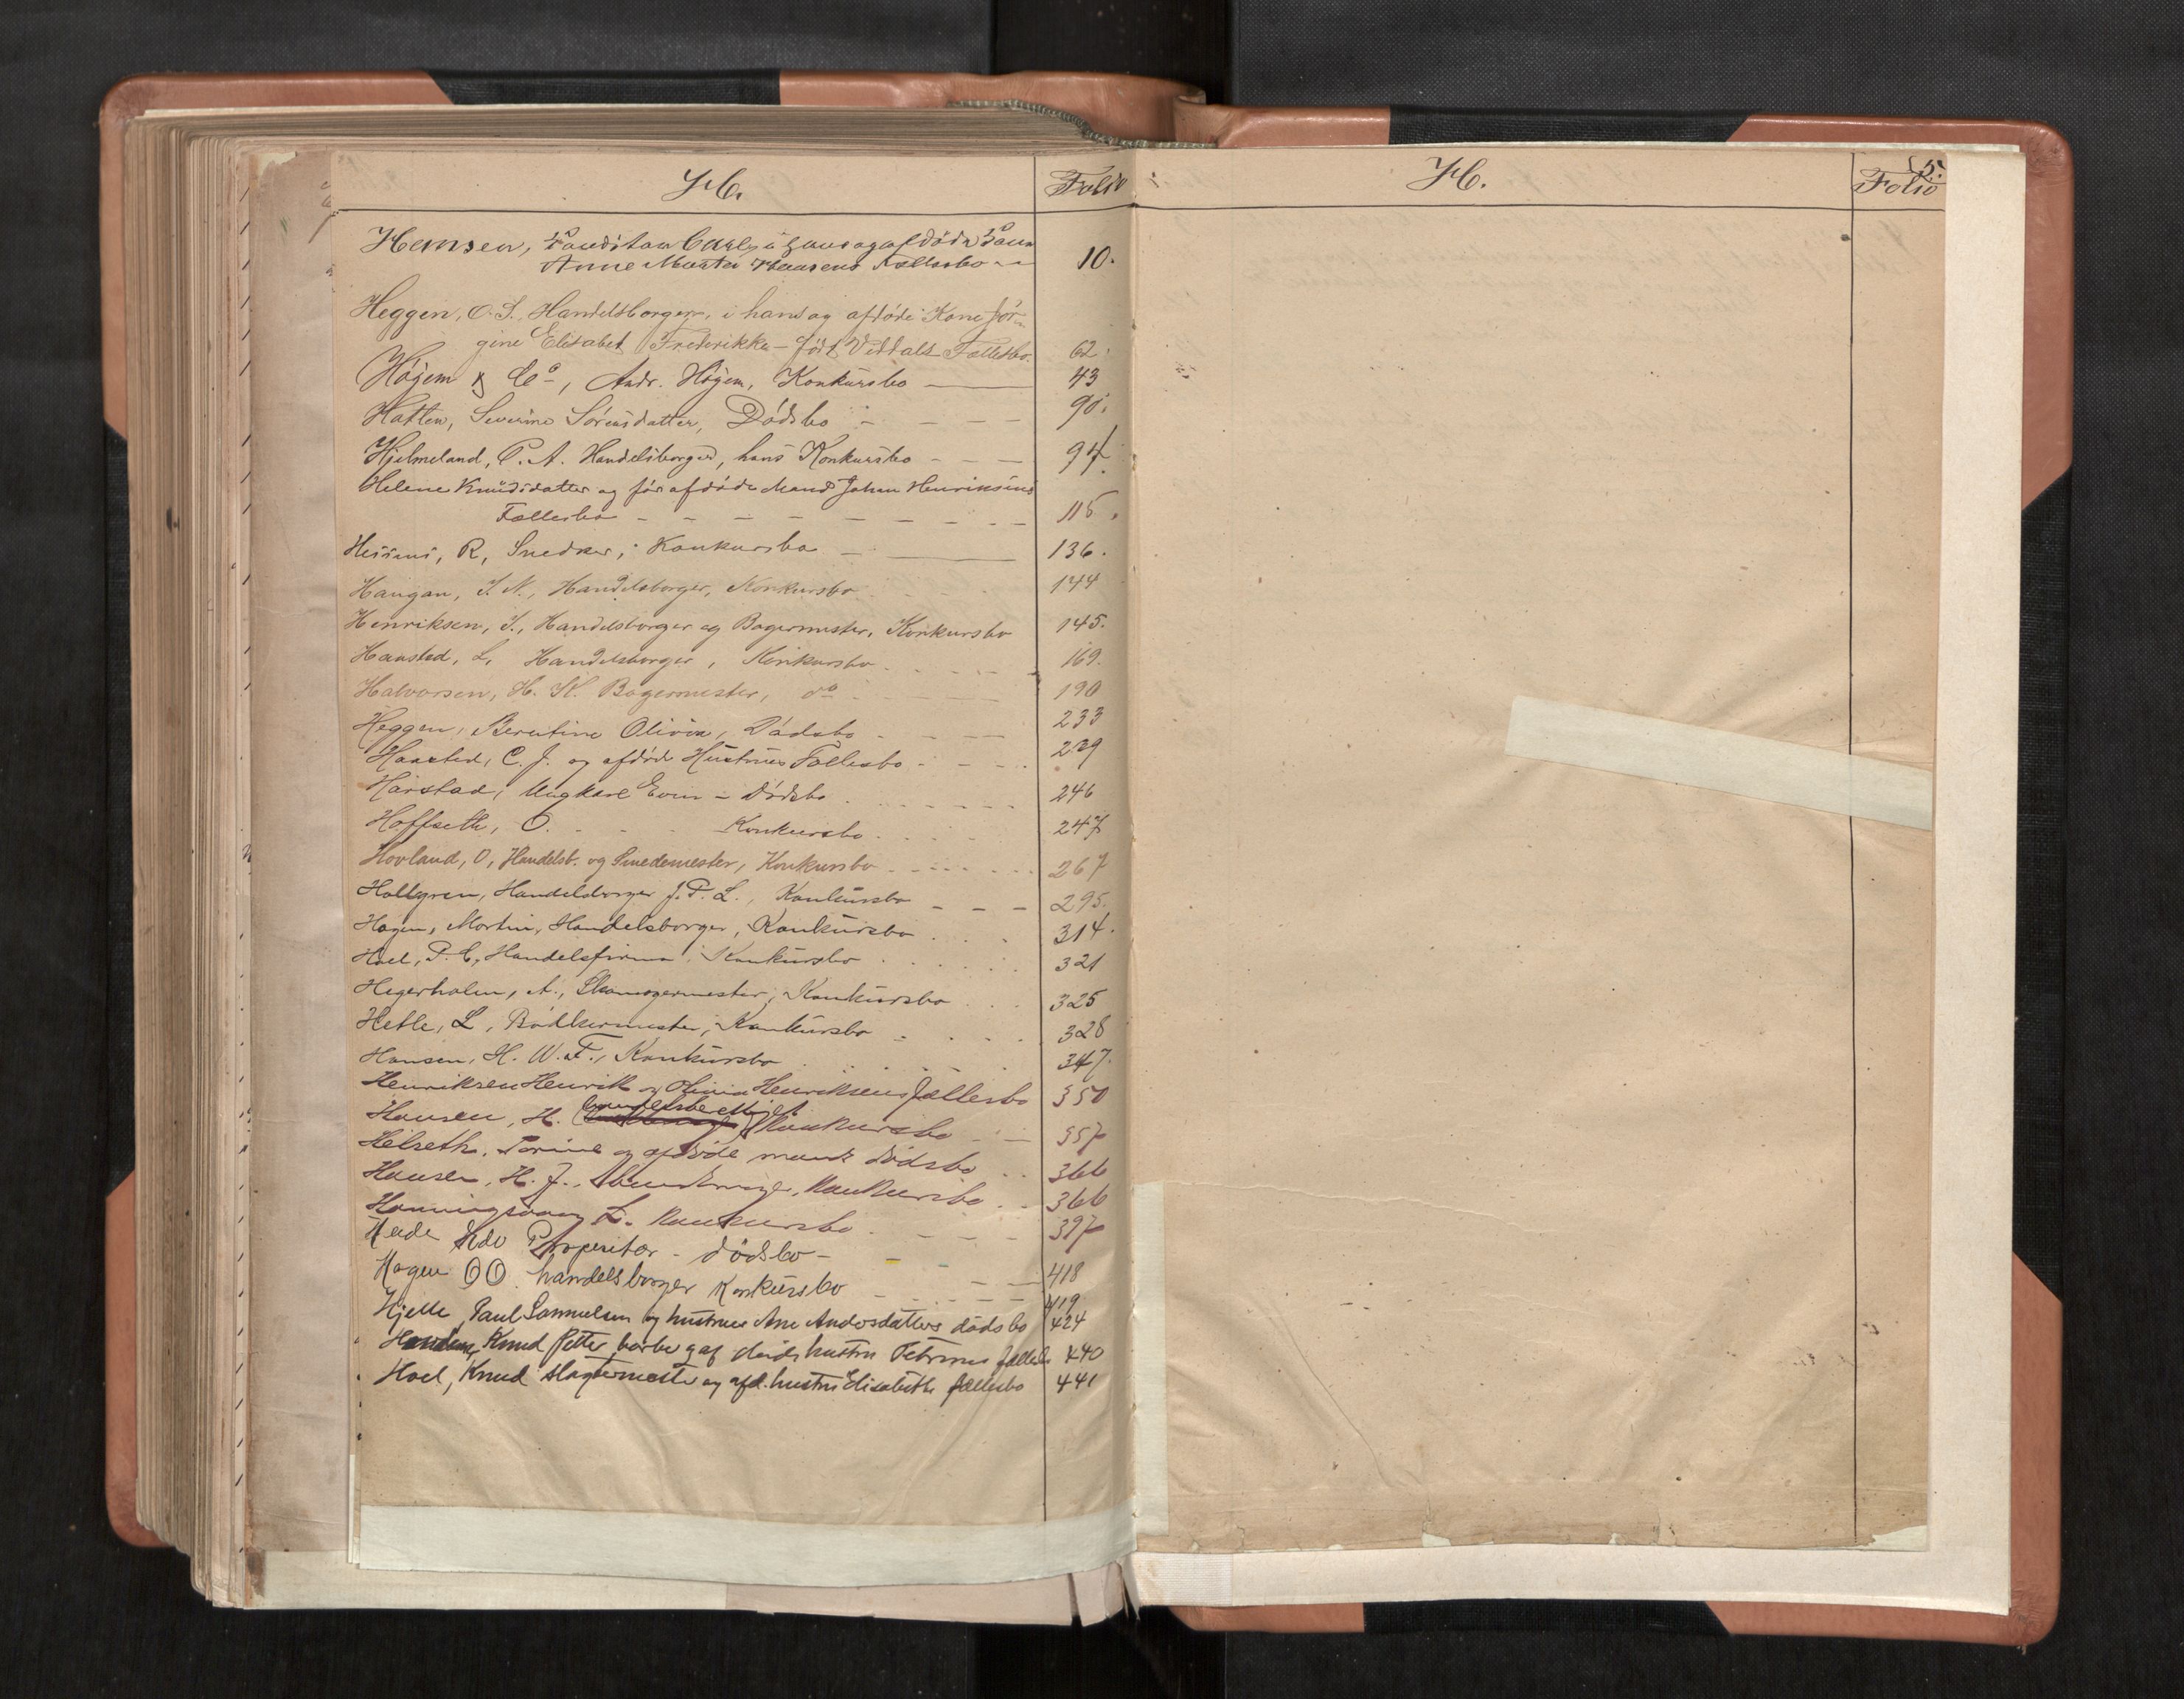 H.
Folio
Hansen, Konditor Carl, i hans og afdøde Kone
Anne Marta Hansens Fællesbo
10.
Heggen, O. S., Handelsborger, i hans og afdøde Kone Jør-
gine Elisabet Frederikke - født Veddals Fællesbo.
62.
Højem & Co, Andr. Højem, Konkursbo
43
Hatten, Severine Sörensdatter, Dödsbo
90.
Hjelmeland, P. A. Handelsborger, hans Konkursbo
94.
Helene Knudsdatter og før afdøde Mand Johan Henriksens
Fællesbo
115.
R, Snedker, Konkursbo
136.
Haugan, J. N., Handelsborger, Konkursbo
144
Henriksen, J., Handelsborger og Bagermester, Konkursbo
145.
Haastad, L, Handelsborger, Konkursbo
169.
Halvorsen, H. K. Bagermester, do
190
Heggen, Berntine Olivia, Dödsbo
233
Haasted, C. J. og afdøde Hustrues Fællesbo
239
Harstad, Ungkarl Even - Dödsbo
246
Hoffseth, O. Konkursbo
247
Hovland, O, Handelsb. og Smedemester, Konkursbo
267
Hallgren, Handelsborger J. P. L., Konkursbo
295.
Hagen, Martin, Handelsborger, Konkursbo
314.
Hoel, P. C, Handelsfirma, Konkursbo
321
Hegerholm, A., Skomagermester, Konkursbo
325
Hetle, L, Bödkermester, Konkursbo
328
Hansen, H. W. F., Konkursbo
347.
Henriksen Henrik og Olivia Henriksens fællesbo
350
Hansen, H. handelsberettiget Konkursbo
357
Helseth, Torine og afdöde mands dödsbo
366
Hansen, H. J., Konkursbo
366
Hanningsvaag L. Konkursbo
397
Heide Proprietær - dödsbo -
418
Hagen OO. handelsborger Konkursbo
419
Hjelle, Paul Samuelsen og hustrues Ane Andersdatters dödsbo
424
Knud Petter barber og afdöde hustru Petrines fællesbo
440
Hoel, Knud slagtermester og afd. hustru Elisabeths fællesbo
441
H.
5.
Folio